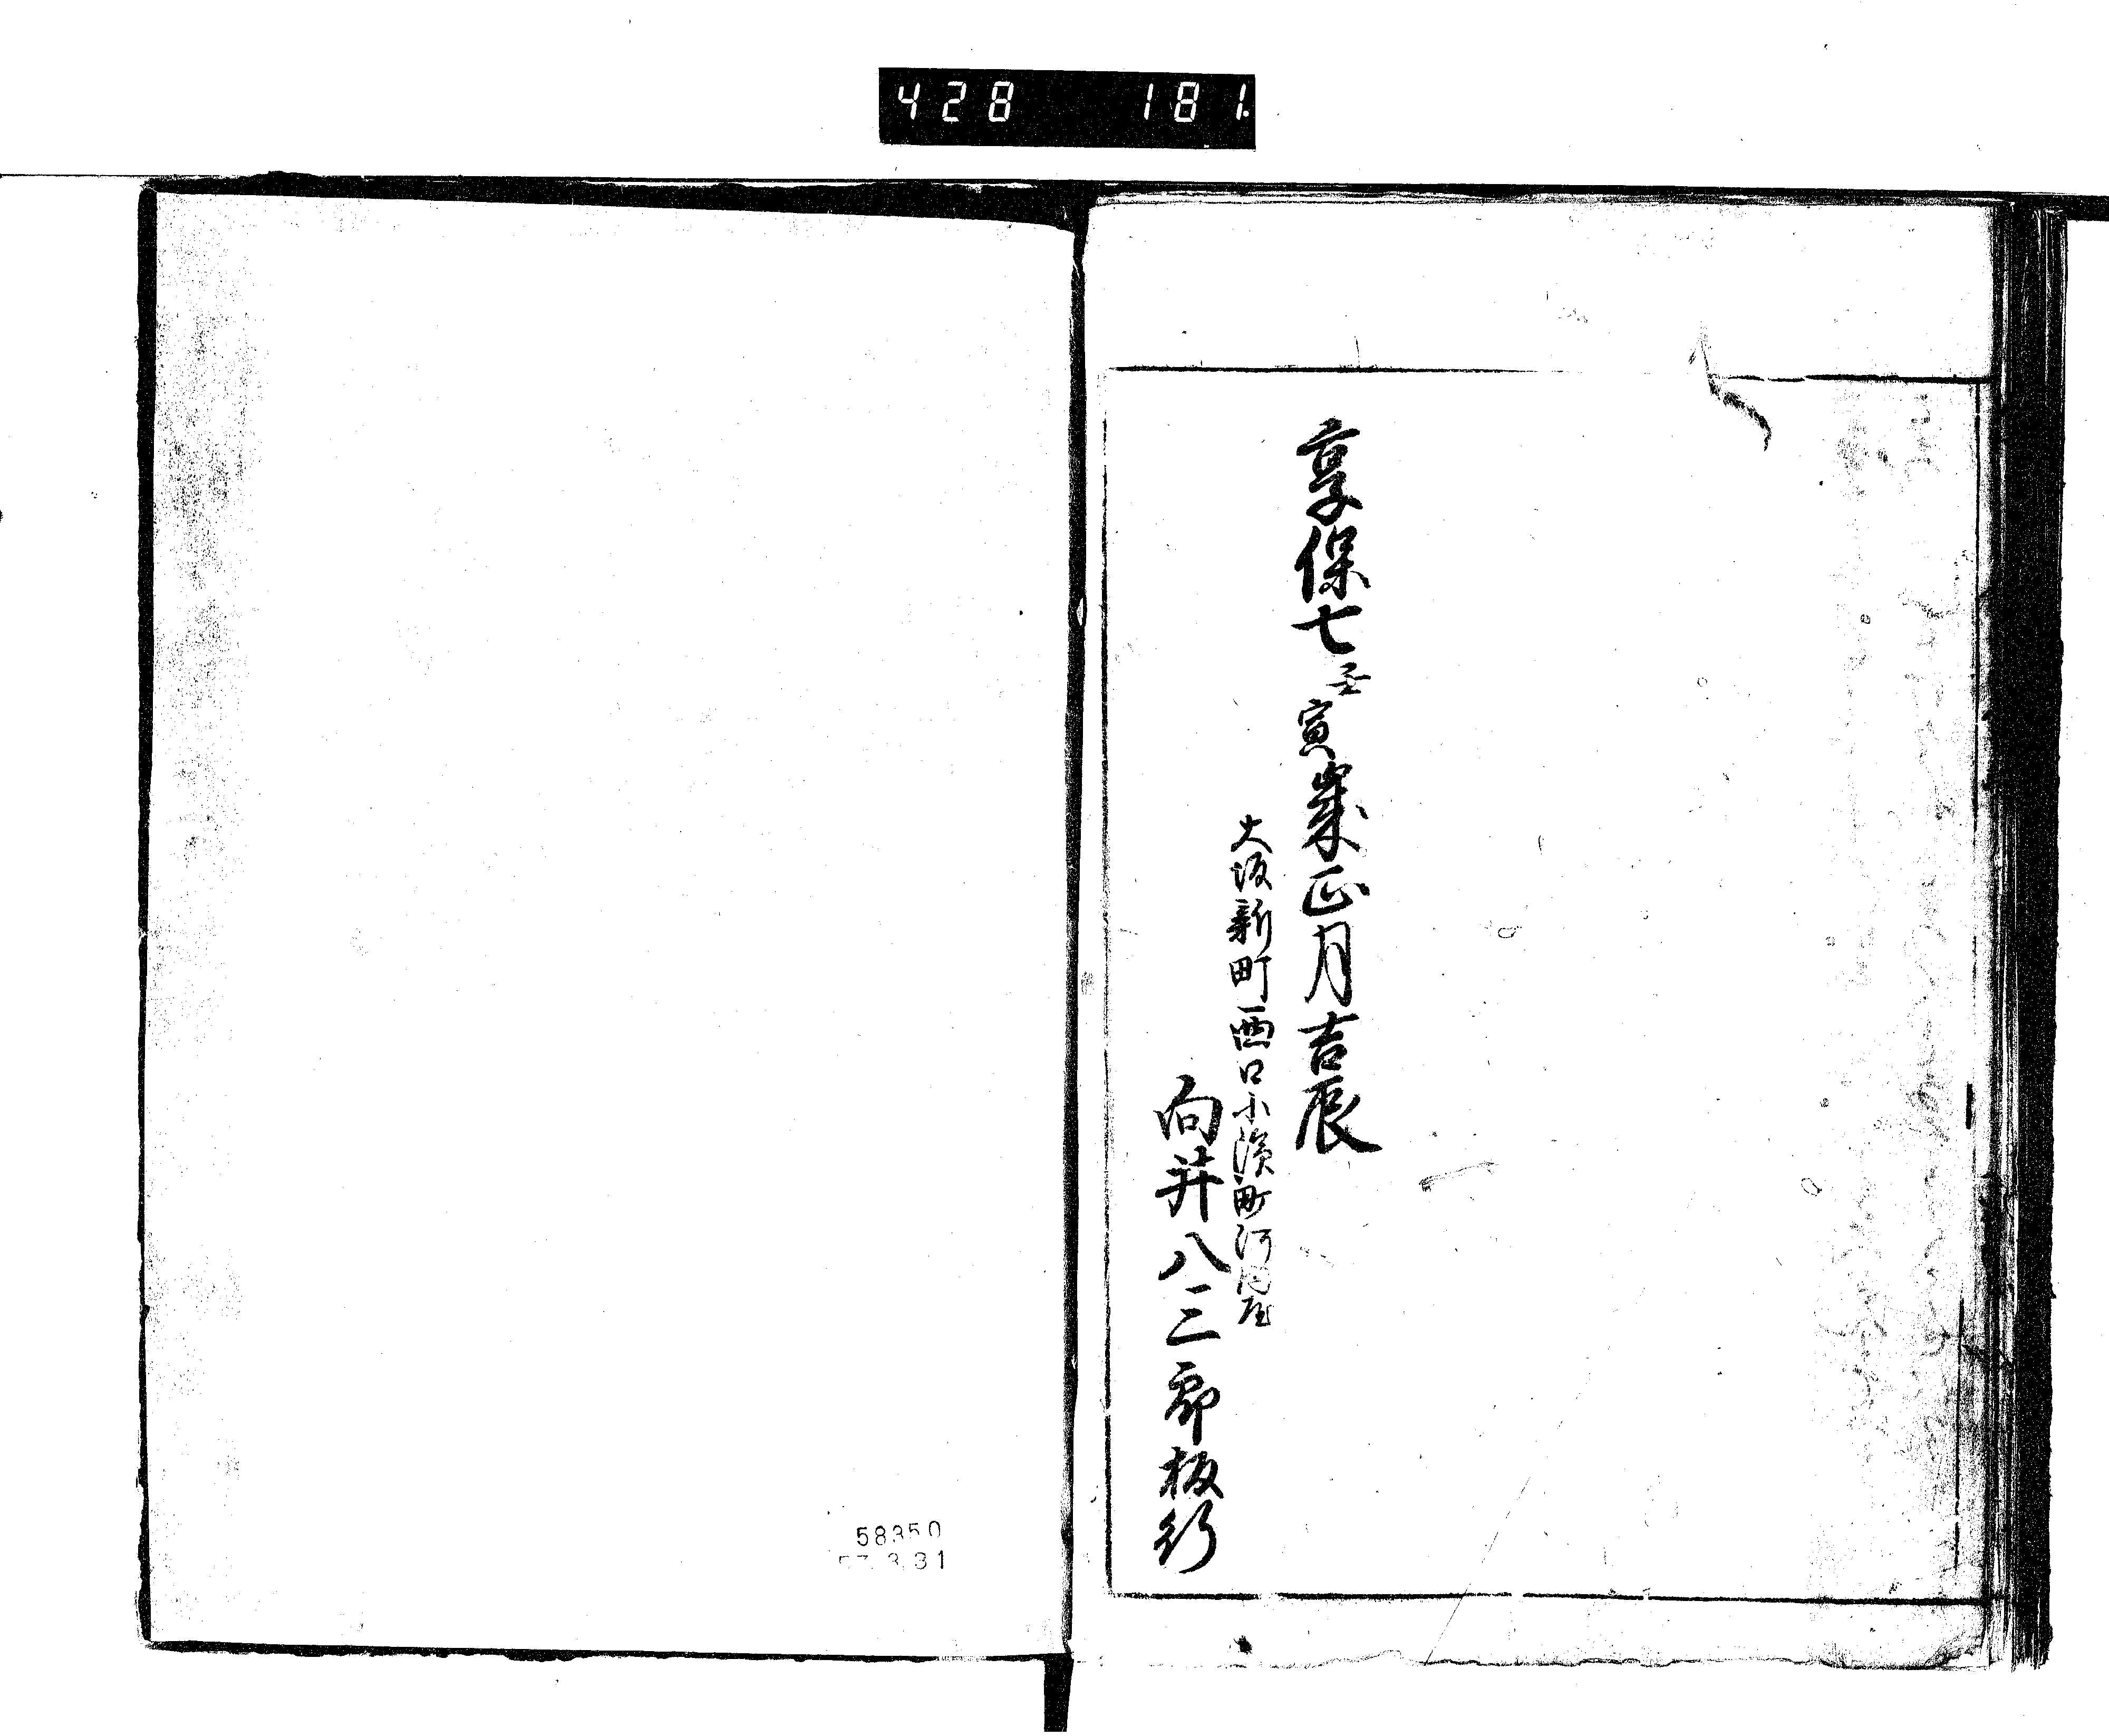 428 181.
享保七壬寅歳正月吉辰
大坂新町西口小濱町河内屋
向井八三郎板行
58350
57.3.31